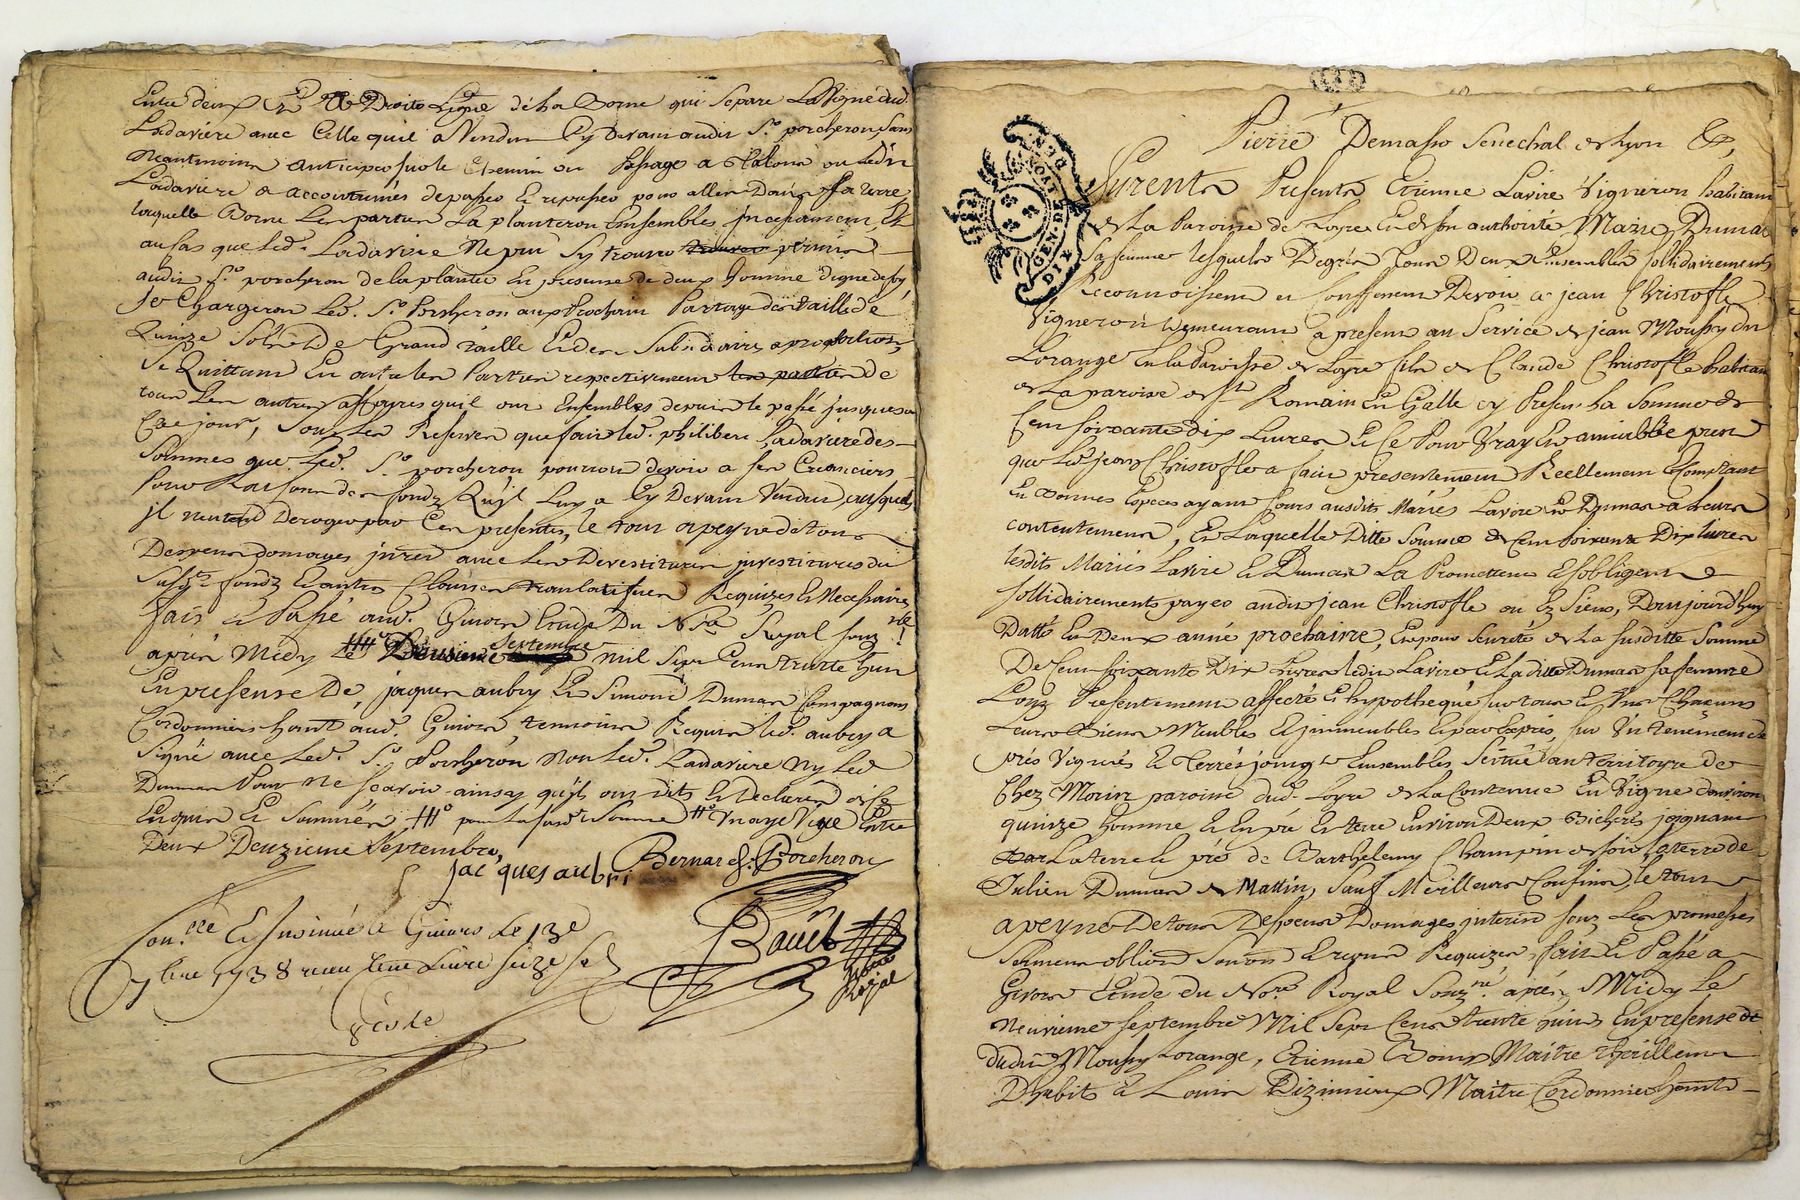 Entre deux Et de Droite Ligne déha Borne qui separe La Vigne dud.
Ladavière avec Celle quil a Vendu Cy Devant audit Sr. porcheron sans
neantmoins anticiper sur le Chemin ou passage a talons ou ledit
Ladaviere a accoutumés de passer Et repasser pour aller Dans sa terre
laquelle Borne Les parties La planteron Ensembles incessament, Et
au cas que led. Ladavière Ne put Sy trouver permis
audit Sr. porcheron de la planter En presense de deux homme digne de foy,
Se Chargeron Led. Sr. Porcheron au prochain Partage des tailles de
Quinze Sols de Grand taille Et des Subsidaires a proportion,
Se Quittant En outre les Parties respectivement les parties de
tous Les autres affayres quil ont Ensembles depuis le passé jusques a
Ce jour, Sous Les Reserves que fait led. philibert Ladaviere des
Sommes que Led. Sr. porcheron pourroit devoir a ses Creanciers
Pour Raisons des fondz Quyl Luy a Cy Devant Vendus, ausquels
il n'entend Deroger par Ces presentes, le tout a peyne de tous
Despens domages intrets avec Les Devestitures investitures du
Susd. fondz Et autres Clauses translatifves Requizes Et Necessaires
fait Et Passé aud. Givors Etude Du Nre. Royal Souz.né
apres Midy Le Deusieme Septembre mil Sept Cent trente huit
En presense De, jaques aubry Et Simond Dumas Compagnons
Cordonniers habitt aud. Givors, temoins Requis led. aubry a
Signé avec Led. Sr. Porcheron Non Led. Ladaviere Ny Led
Dumas Pour ne scavoir ainsy quyls ont dits Et declarés de ce
Enquis Et Sommés pour la susd. Somme Vraye Vigne Entre
Deux Deuzieme Septembre,
jacques aubri Bernard Porcheron
Con.llé Et Insinué a Givors Le 13e
7bre 1738 reçu une Livre seize s.
Bouët
Notre
Royal
GEN. DE LYON
DIX DEN.
Pierré Demasso Senechal de Lyon &,
Furents Presents Etienne Lavire Vigneron habitant
de La Paroisse de Loyre Et de son authorité Marie Dumas
Sa femme lesquels De gré Tous Deux Ensembles sollidairement
Reconnoissent et Confessent Devoir a jean Christofle
Vigneron demeurant a present au Service de jean Moussy du
Lorange En la Paroisse de Loyre fils de Claude Christofle habitant
de La paroisse de St. Romain En Galle cy Present ha Somme de
Cent soixante dix Livres Et Ce Pour Vray Et amiable prest
que Led. jean Christofle a fait presentement Reellement Comptant
En Bonnes Especes ayant Cours ausdits Mariés Lavire Et Dumas a leurs
contentement, Et Laquelle Ditte Somme de Cent soixante Dix Livres
lesdits Mariés Lavire Et Dumas La Promettent Et s'obligent
sollidairement payer audit jean Christofle ou Ez Siens, D'aujourd'huy
Datté En Deux année prochainne, Et pour seurété de La susditte Somme
De Cent soixante Dix Livres ledit Lavire Et La ditte Dumas sa femme
L'onz Presentement affecté Et hypothequé sur tous Et Uns Chaquns
Leurs Biens Meubles Et immeubles Et par Exprés, sur Un tenement de
prés Vignes Et Terrés joingt Ensembles Scitué au territoyre de
Chez Morin paroisse dud. Loyre de La Contenue En Vigne d'environ
quinze homme Et En pré Et terre Environ Deux Bicherés joignant
Par La terre Et pré de Barthelemy Champin de soir, la terre de
Julien Dumas de Mattin, Sauf Meilleurs Confins, le tout
a peyne De tous Despens Domages interis sous Les promesses
Serment obligons Soumons Et regnon Requizes, fait Et Passé a
Givors Etude du Nore. Royal Souz.né apres Midy Le
Neuvieme Septembre Mil Sept Cens trente huit En presense de
dudit Moussy Lorange, Etienne Boiron Maitre thaillieur
D'habits à Louis Dizimieux Maitre Cordonnier habitt